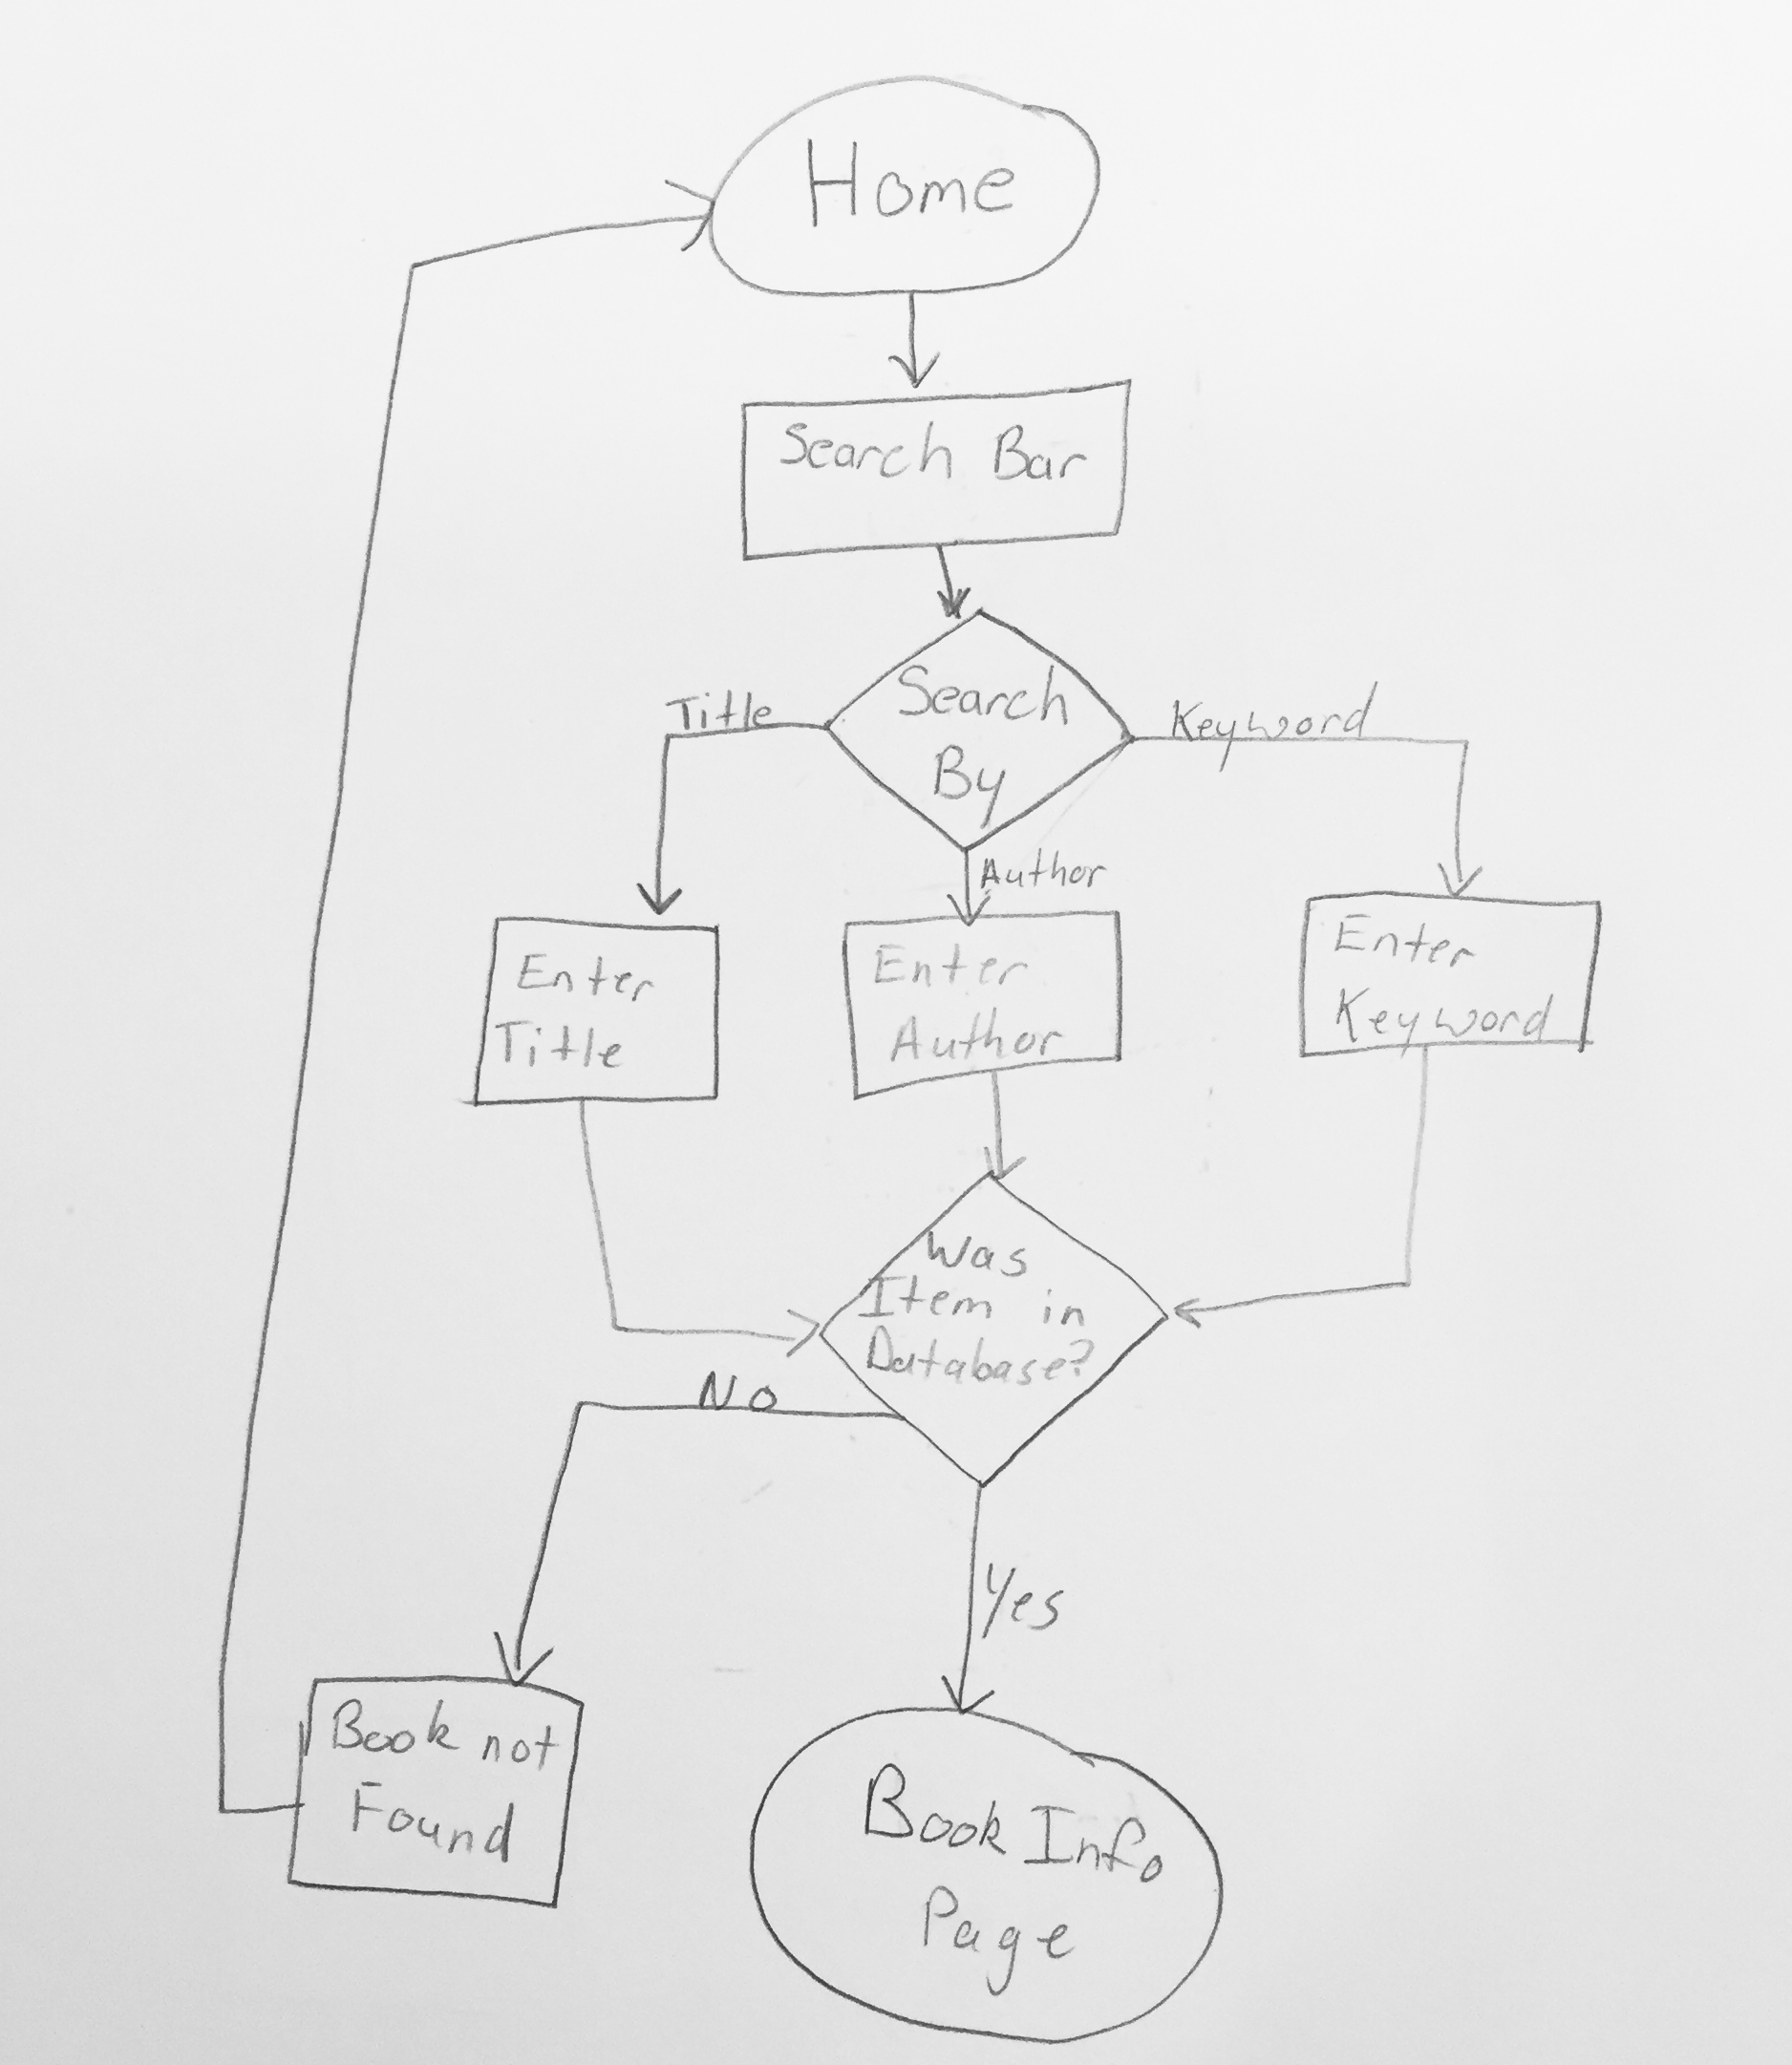 Home
Search Bar
Search
By
Title
Keyword
Author
Enter
Title
Enter
Author
Enter
Keyword
Was
Item in
Database?
No
Yes
Book not
Found
Book Info
Page